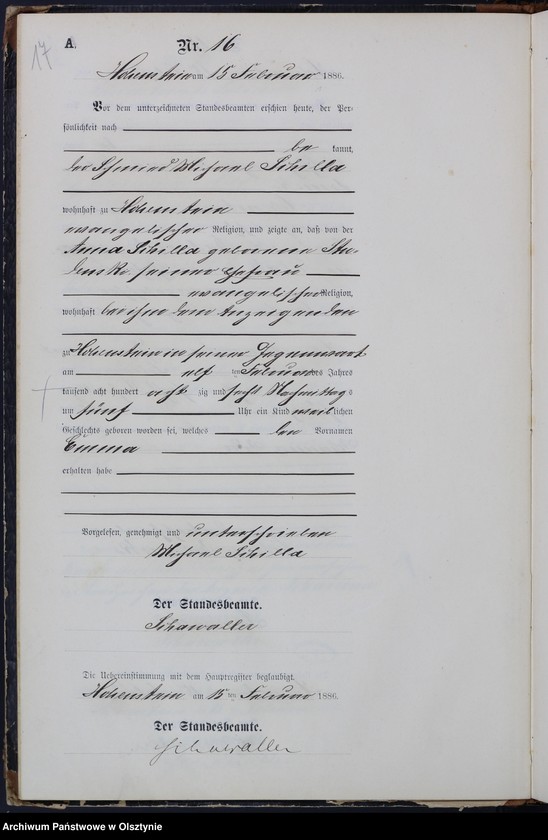 17
A.
Nr. 16
Hohenstein am 15 Februar 1886.
Vor dem unterzeichneten Standesbeamten erschien heute, der Per-
sönlichkeit nach
be kannt,
der Schmied Michael Schilla
wohnhaft zu Hohenstein
evangelischer Religion, und zeigte an, daß von der
Anna Schilla geborenen
seiner Ehefrau
evangelischer Religion,
wohnhaft bei ihm dem Anzeigenden
zu Hohenstein in seiner Gegenwart
am elf ten Februar des Jahres
tausend acht hundert acht zig und sechs Nachmittags
um fünf Uhr ein Kind weiblichen
Geschlechts geboren worden sei, welches den Vornamen
Emma
erhalten habe
Vorgelesen, genehmigt und unterschrieben
Michael Schilla
Der Standesbeamte.
Schawaller
Die Uebereinstimmung mit dem Hauptregister beglaubigt.
Hohenstein am 15 ten Februar 1886.
Der Standesbeamte.
Schawaller
Archiwum Państwowe w Olsztynie